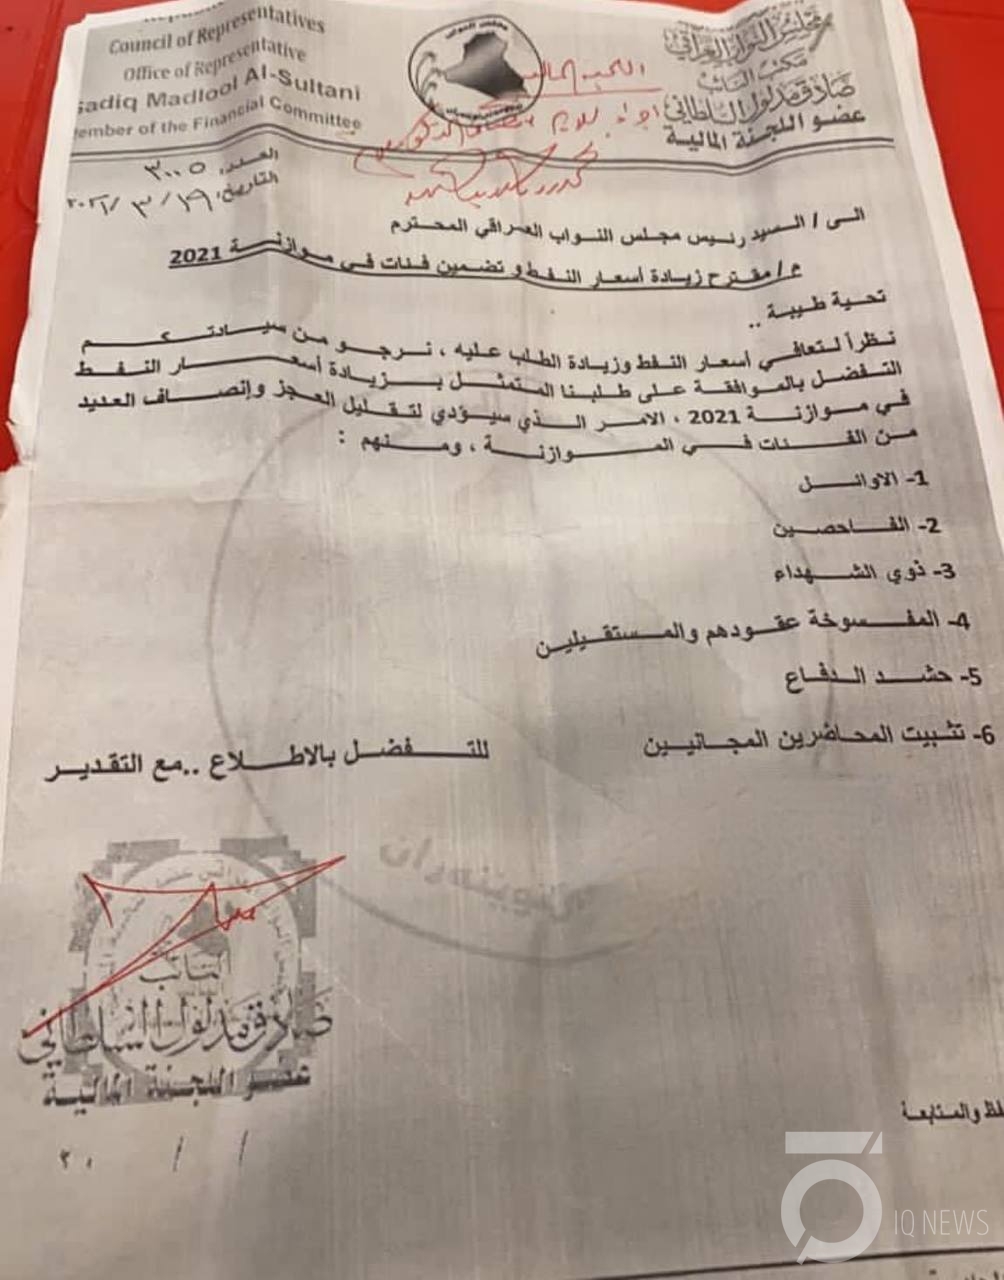 Council of Representatives
Office of Representative
Sadiq Madlool Al-Sultani
ember of the Financial Committee
مجلس النواب العراقي
مكتب النائب
صادق مدلول السلطاني
عضو اللجنة المالية
مجلس النواب
العدد: ٣٠٠٥
التاريخ: ١٩/ ٣ /٢٠٢١
الى / السيد رئيس مجلس النواب العراقي المحترم
م / مقترح زيادة أسعار النفط و تضمين فئات في موازنة 2021
تحية طيبة ..
نظراً لتعافي أسعار النفط وزيادة الطلب عليه ، نرجو من سيادتكم
التفضل بالموافقة على طلبنا المتمثل بزيادة أسعار النفط
في موازنة 2021 ، الامر الذي سيؤدي لتقليل العجز وإنصاف العديد
من الفئات في الموازنة ، ومنهم :
1- الاوائل
2- الفاحصين
3- ذوي الشهداء
4- المفسوخة عقودهم والمستقيلين
5- حشد الدفاع
6- تثبيت المحاضرين المجانيين
للتفضل بالاطلاع ..مع التقدير
النائب
صادق مدلول السلطاني
عضو اللجنة المالية
/ / ٢٠
والمتابعة
IQ NEWS